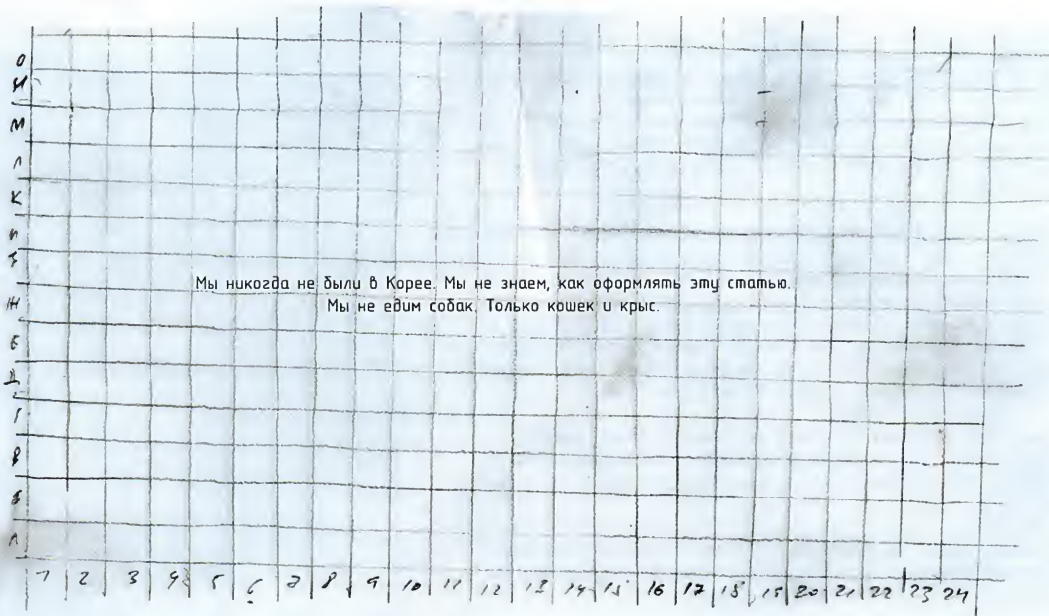 О
Н
М
Л
К
И
Мы никогда не были в Корее. Мы не знаем, как оформлять эту статью.
Ж
Мы не едим собак. Только кошек и крыс.
Е
Д
Г
В
Б
Л
1 2 3 4 5 6 7 8 9 10 11 12 13 14 15 16 17 18 19 20 21 22 23 24